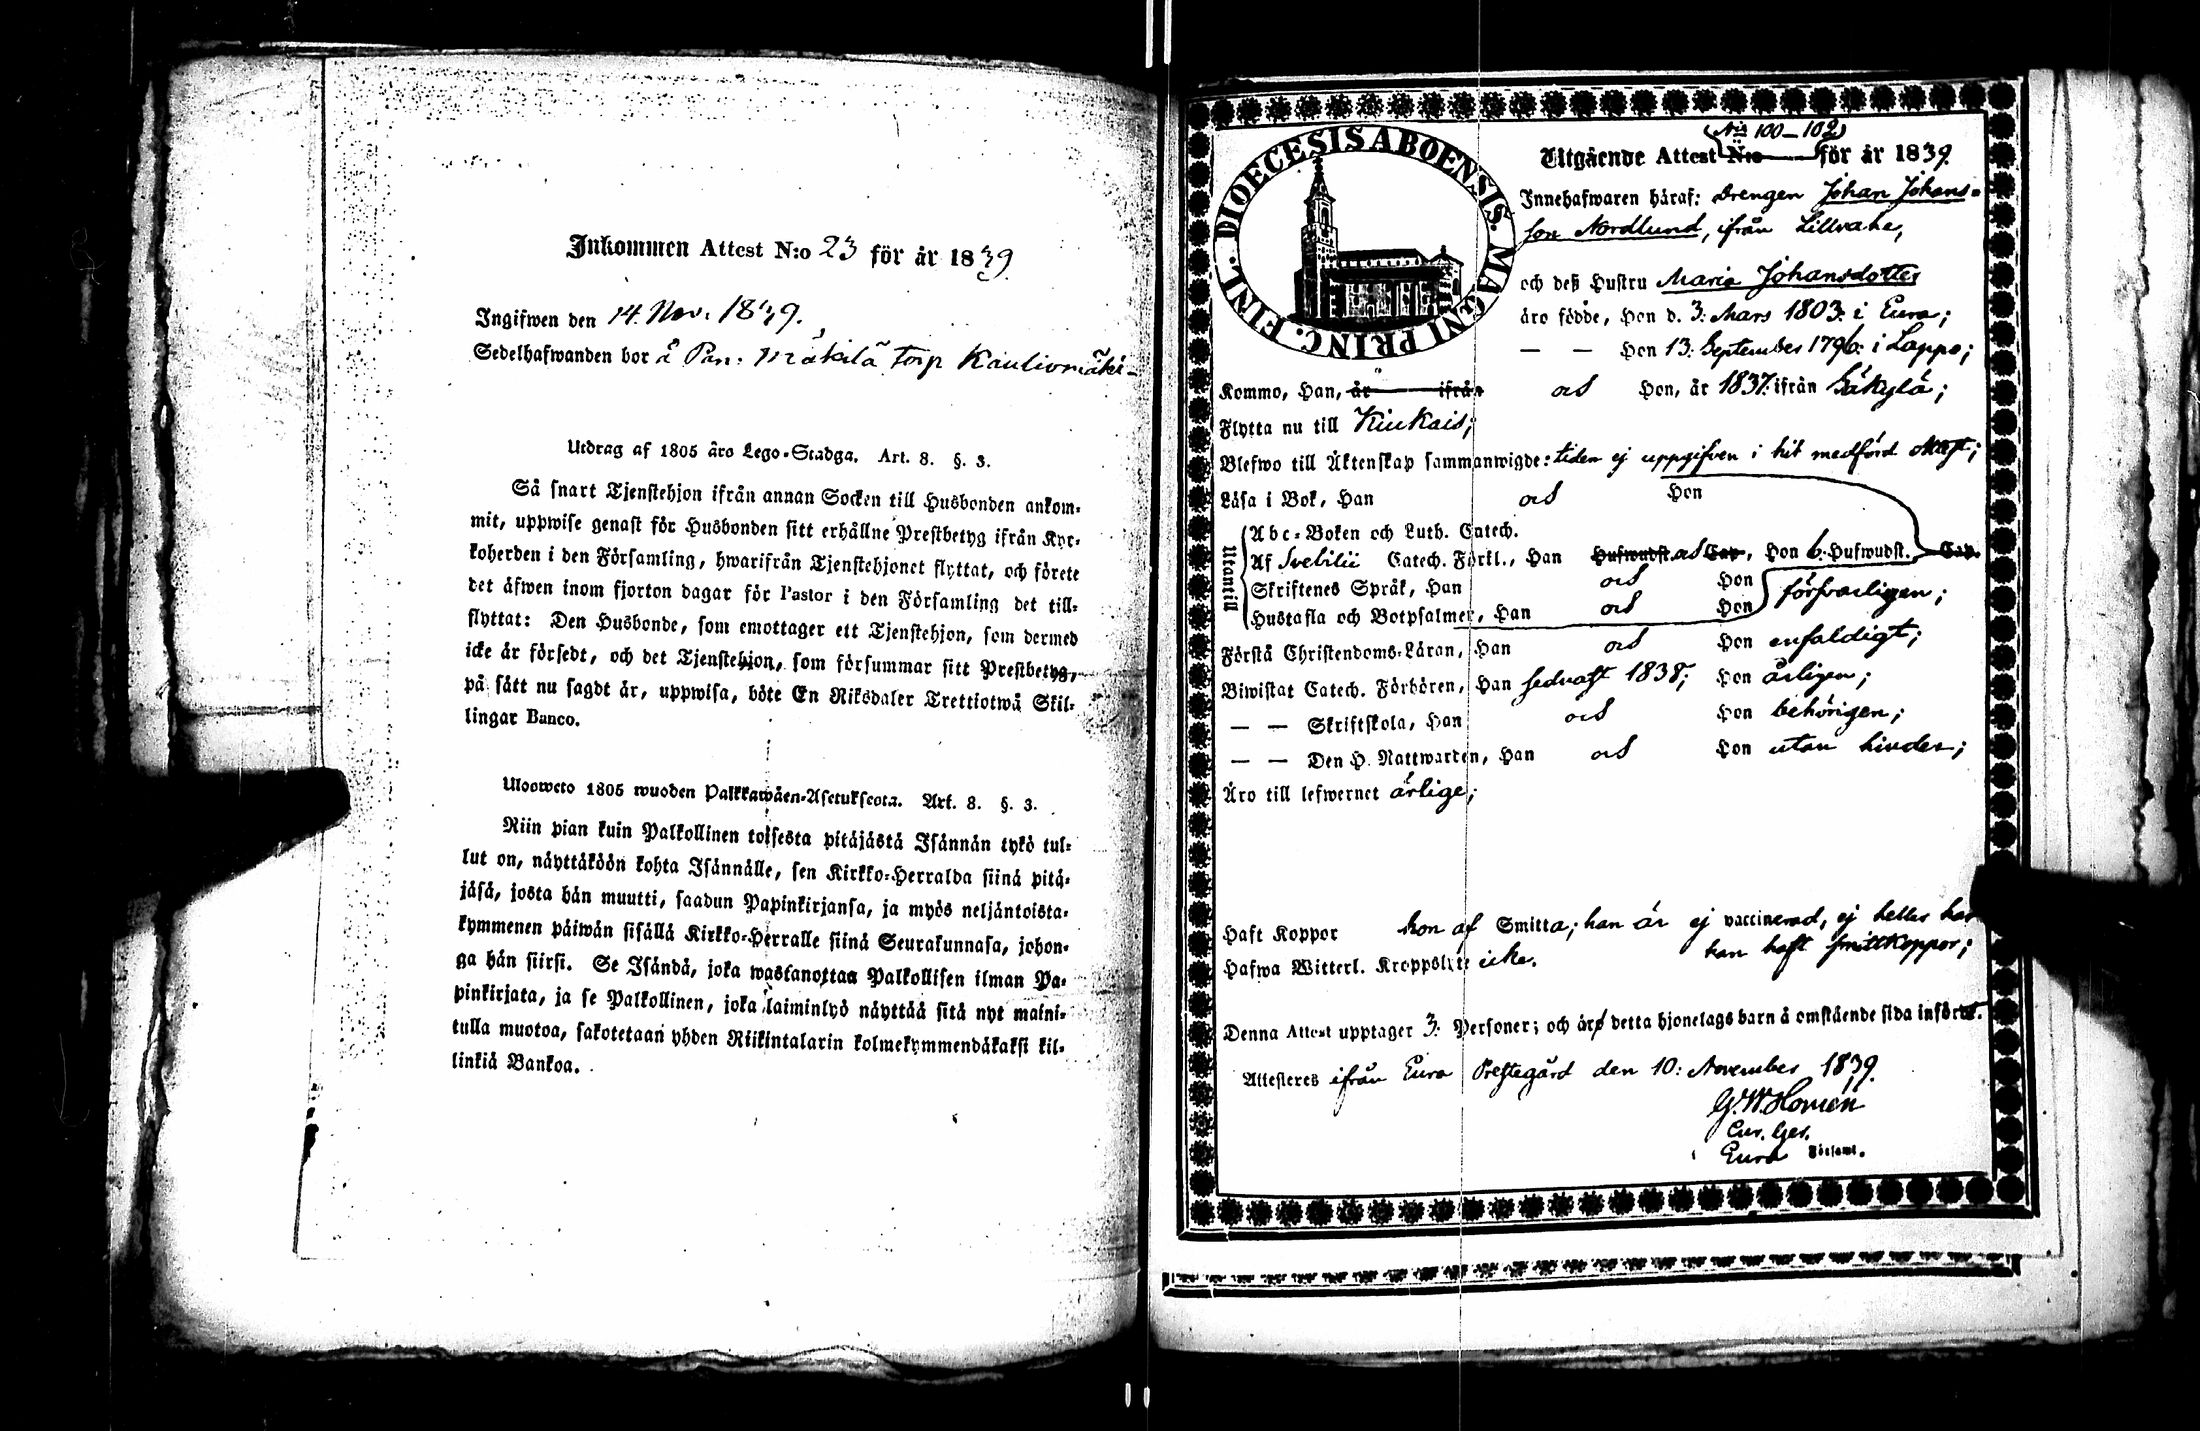 Inkommen Attest N:o 23 för år 1839
Ingifwen den 14. Nov. 1839.
Sedelhafwanden bor å Pan: Mäkilä torp
Utdrag af 1805 åro Lego-Stadga. Art. 8. §. 3.
Så snart Tjenstehjon ifrån annan Socken till Husbonden ankom-
mit, uppwise genast för Husbonden sitt erhållne Prestbetyg ifrån Kyr-
koherden i den Församling, hwarifrån Tjenstehjonet flyttat, och förete
det äfwen inom fjorton dagar för Pastor i den Församling det till-
flyttat: Den Husbonde, som emottager ett Tjenstehjon, som dermed
icke är försedt, och det Tjenstehjon, som försummar sitt Prestbetyg,
på sätt nu sagdt är, uppwisa, böte En Riksdaler Trettiotwå Skil-
lingar Banco.
Ulosweto 1805 wuoden Palkkawäen-Asetuksesta. Art. 8. §. 3.
Niin pian kuin Palkollinen toisesta pitäjästä Isännän tykö tul-
lut on, näyttäköön kohta Isännälle, sen Kirkko-Herralda siinä pitä-
jäsä, josta hän muutti, saadun Papinkirjansa, ja myös neljäntoista-
kymmenen päiwän sisällä Kirkko-Herralle siinä Seurakunnasa, johon-
ga hän siirsi. Se Isändä, joka wastanottaa Palkollisen ilman Pa-
pinkirjata, ja se Palkollinen, joka laiminlyö näyttää sitä nyt maini-
tulla muotoa, sakotetaan yhden Riikintalarin kolmekymmendäkaksi kil-
linkiä Bankoa.
DIOECESIS ABOENSIS. MAGNI PRINC. FINL.
(N:is 100-102)
Utgående Attest N:o för år 1839.
Innehafwaren häraf: Drengen Johan Johans-
son Nordlund, ifrån Lillvahe,
och deß Hustru Maria Johansdotter
äro födde, Han d. 3: Mars 1803: i Eura;
— — Hon 13: September 1796: i Lappo;
Kommo, Han, är ifrån Hon, år 1837: ifrån Säkylä;
Flytta nu till Kiukais;
Blefwo till Äktenskap sammanwigde: tiden ej uppgifven i hit medförd Attest;
Läsa i Bok, Han Hon
Utantill
Abc-Boken och Luth. Catech.
Af Svebilii Catech. Förkl., Han Hufwudst. Cap., Hon 6: Hufwudst. Cap.
Skriftenes Språk, Han Hon
Hustafla och Botpsalmer, Han Hon försvarligen;
Förstå Christendoms-Läran, Han Hon enfaldigt;
Biwistat Catech. Förhören, Han sednast 1838; Hon årligen;
— — Skriftskola, Han Hon behörigen;
— — Den H. Nattwarden, Han Hon utan hinder;
Äro till lefwernet ärlige;
Haft Koppor hon af Smitta; han är ej vaccinerad, ej heller har
han haft smittkoppor;
Hafwa Witterl. Kroppslyte icke.
Denna Attest upptager 3: Personer; och äro detta hjonelags barn å omstående sida införde.
Attesteres ifrån Eura Prestegård den 10: November 1839.
G. W. Homén
Eura Församl.